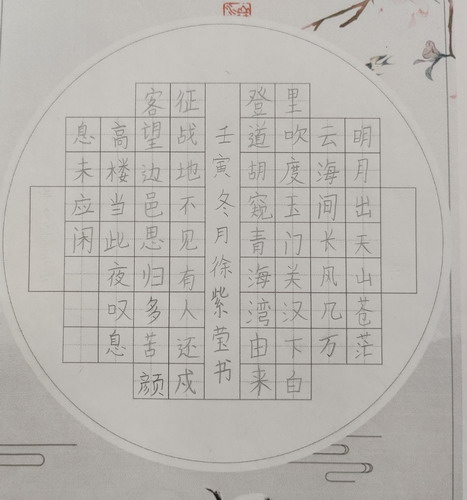 明月出天山苍茫
云海间长风几万
里吹度玉门关汉下白
登道胡窥青海湾由来
壬寅冬月徐紫莹书
征战地不见有人还戍
客望边邑思归多苦颜
高楼当此夜叹息
息未应闲